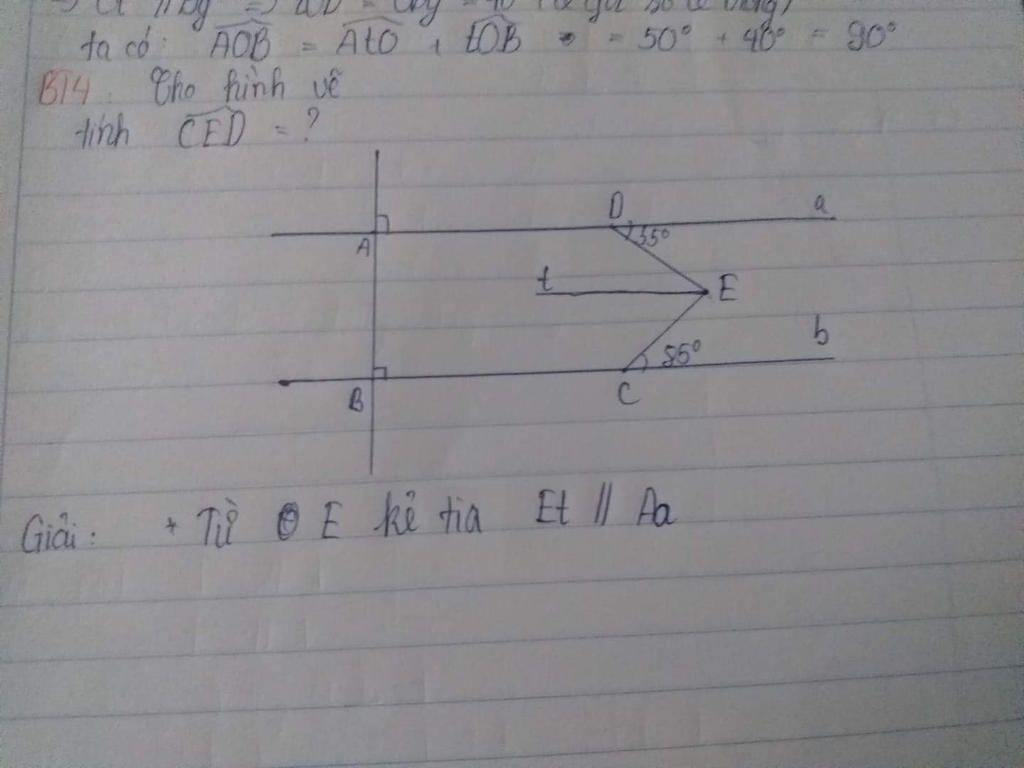 ta có: AOB = AtO + tOB = 50° + 40° = 90°
BT4: Cho hình vẽ
tính CED = ?
D
a
A
35°
t
E
b
55°
B
C
Giải: + Từ E kẻ tia Et // Aa